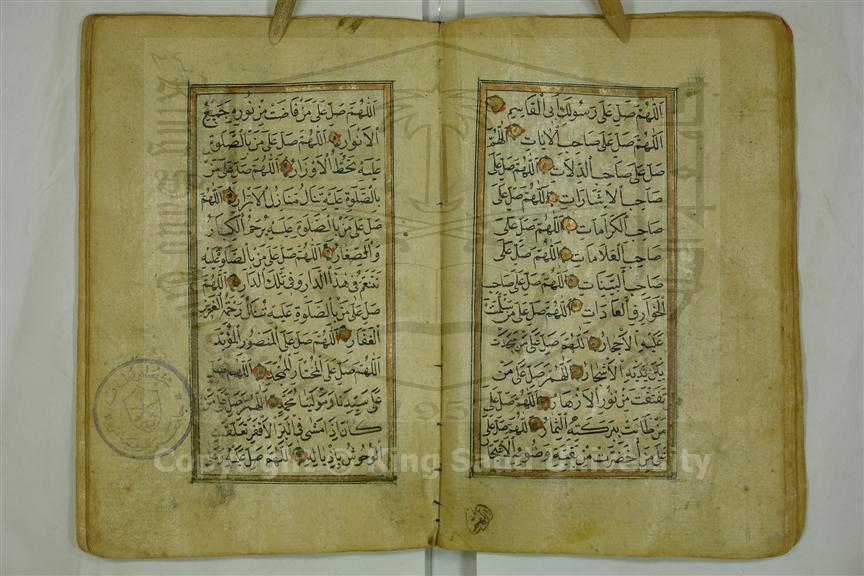 اللهم صل على رسولك أبي القاسم
اللهم صل على صاحب الآيات اللهم
صل على صاحب الدلالات اللهم صل على
صاحب الإشارات اللهم صل على
صاحب الكرامات اللهم صل على
صاحب العلامات اللهم صل على
صاحب البينات اللهم صل على صاحب
الخوارق العادات اللهم صل على من سلمت
عليه الأحجار اللهم صل على من سجدت
بين يديه الأشجار اللهم صل على من
تفتقت من نوره الأزهار اللهم صل على
من طابت ببركته الثمار اللهم صل على
على من اخضرت من بقية وضوئه الأشجار
اللهم صل على من فاضت من نوره جميع
الأنوار اللهم صل على من بالصلوة
عليه تحط الأوزار اللهم صل على من
بالصلوة عليه تنال منازل الأبرار اللهم
صل على من بالصلوة عليه يرحم الكبار
والصغار اللهم صل على من بالصلوة عليه
نتنعم في هذا الدار وفي تلك الدار اللهم
صل على من بالصلوة عليه تنال رحمة العزيز
الغفار اللهم صل على المنصور المؤيد
اللهم صل على المختار الممجد اللهم صل
على سيدنا ومولينا محمد اللهم صل على من
كان إذا مشى في البر الأقفر تعلقت
الوحوش بأذياله اللهم صل عليه وعلى
Copyright © King Saud University
1957